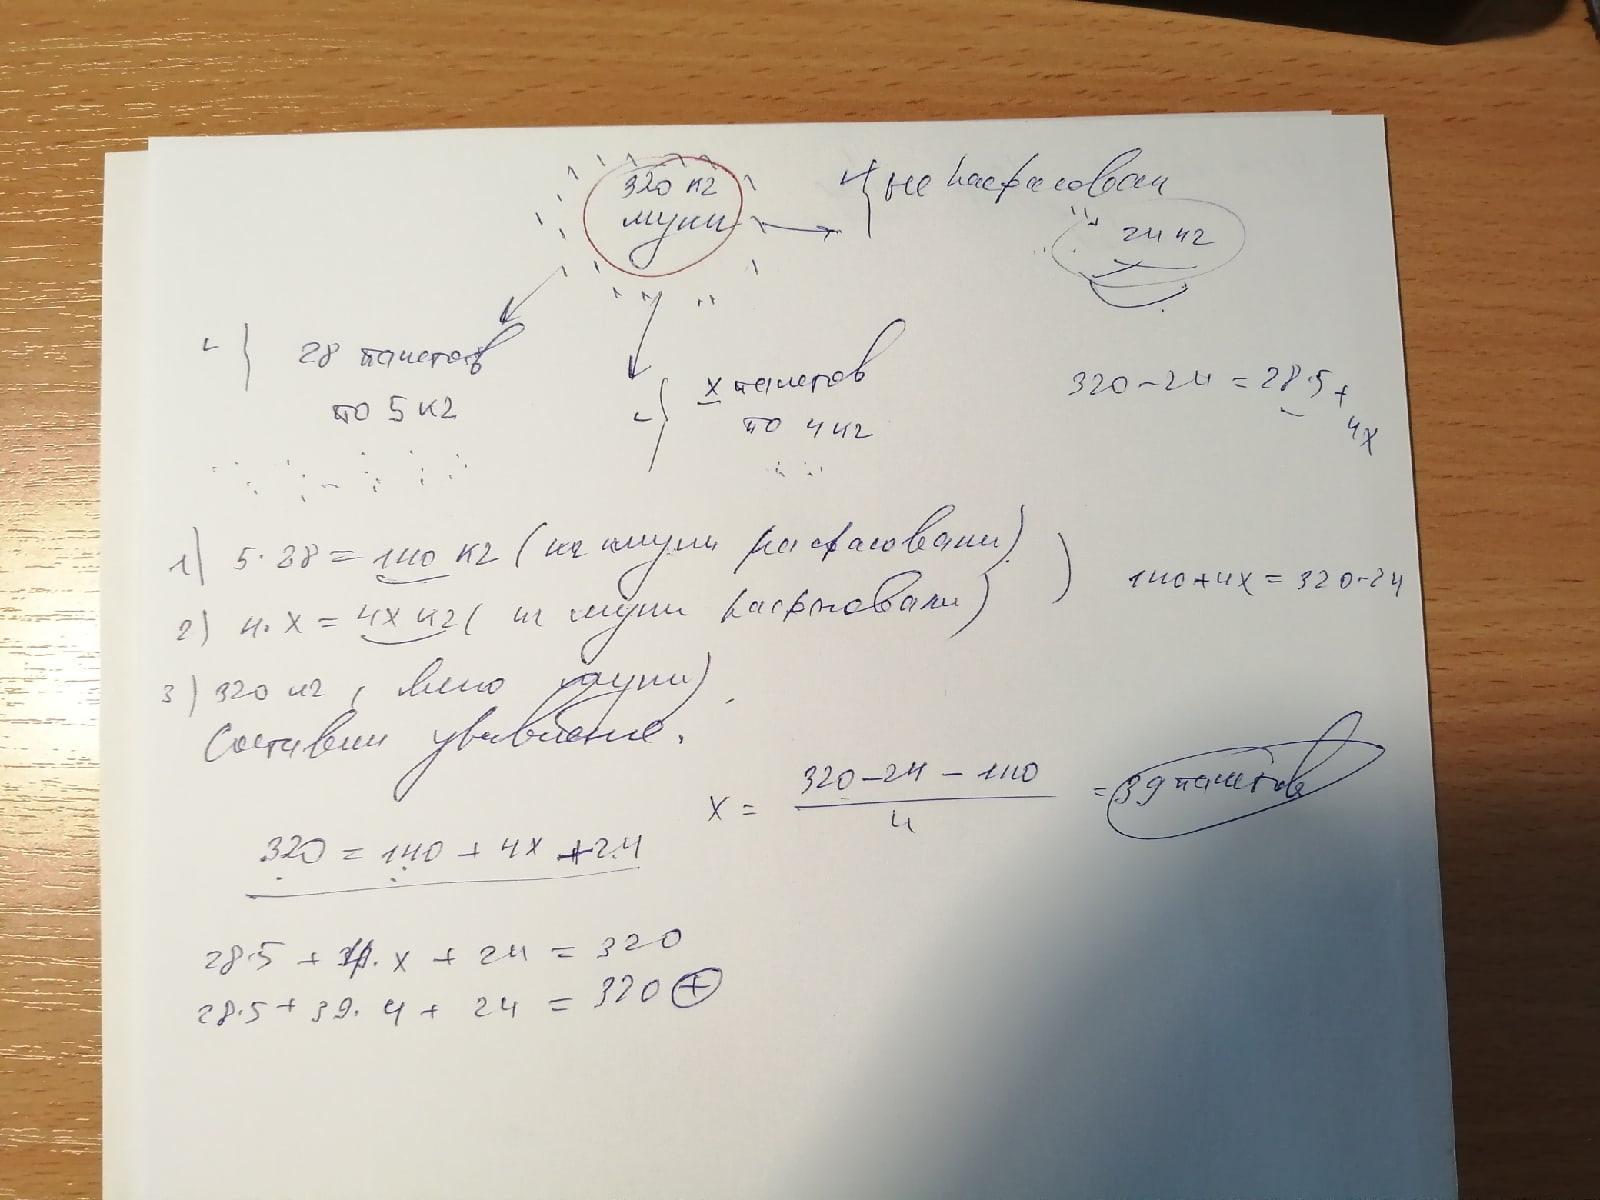 320 кг
муки
не расфасовали
24 кг
28 пакетов
по 5 кг
x пакетов
по 4 кг
320 - 24 = 28·5 +
4x
1) 5·28 = 140 кг ( муки расфасовали)
2) 4·x = 4x кг ( муки расфасовали)
140 + 4x = 320-24
3) 320 кг ( муки)
Составим уравнение.
x = (320 - 24 - 140) / 4 = 39 пакетов
320 = 140 + 4x + 24
28·5 + 4·x + 24 = 320
28·5 + 39·4 + 24 = 320 +